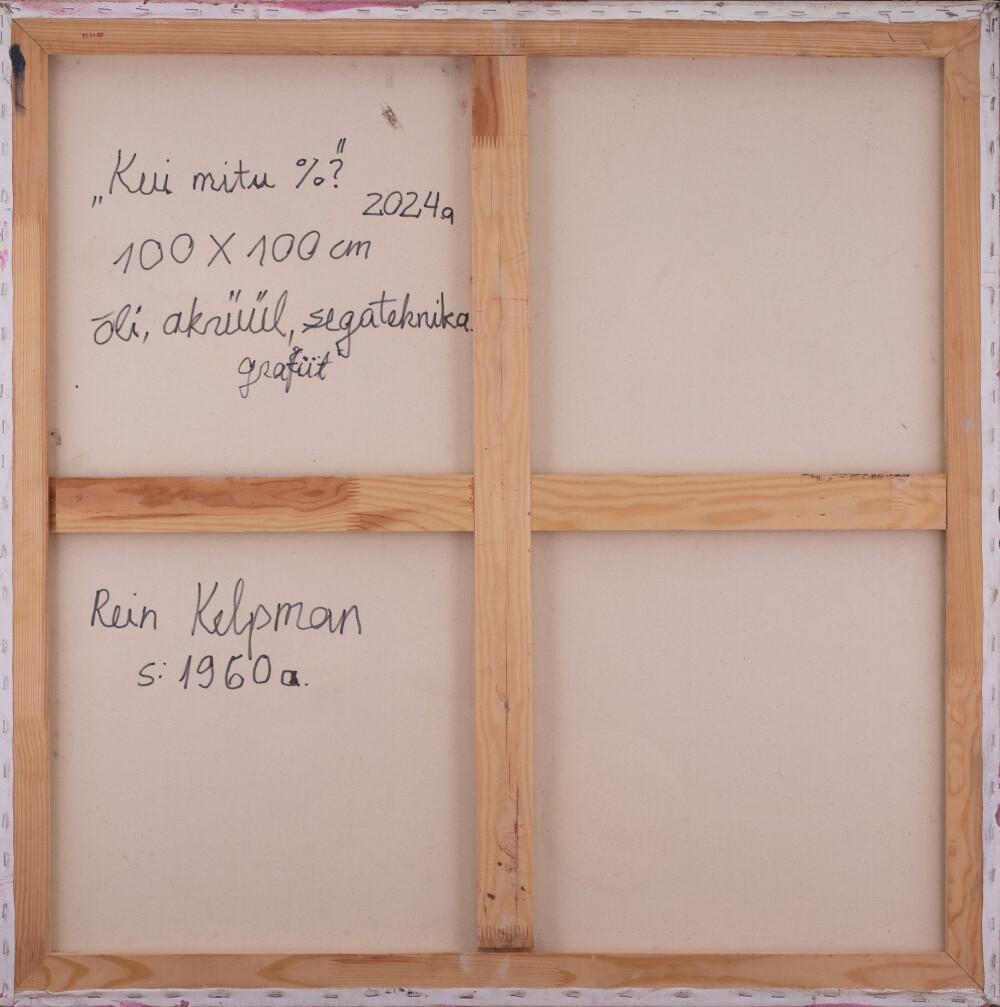 „Kui mitu %?"
2024a
100 X 100 cm
õli, akrüül, segateknika.
grafiit
Rein Kelpman
s: 1960a.